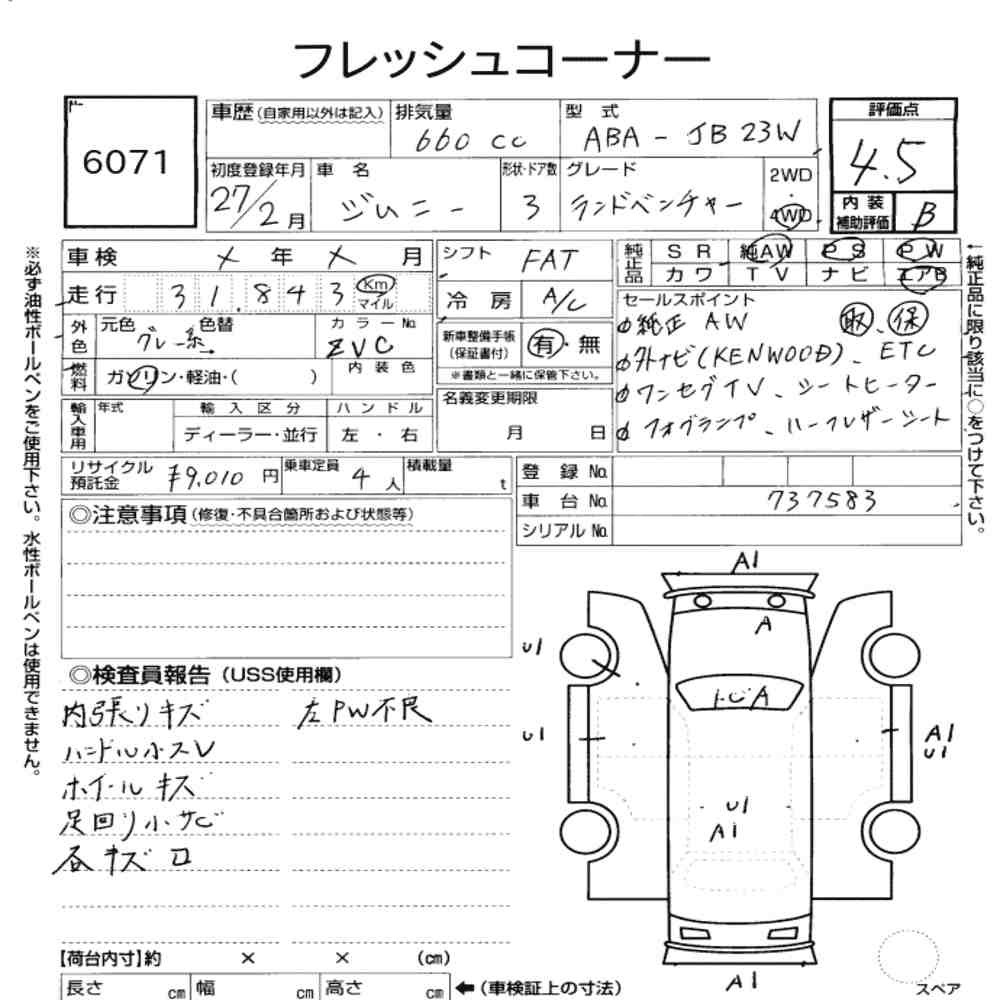 フレッシュコーナー
6071
車歴 (自家用以外は記入) 排気量 660 cc 型式 ABA - JB23W
評価点 4.5
初度登録年月 27/2月 車名 ジムニー 形状・ドア数 3 グレード ランドベンチャー 2WD ・ 4WD
内装補助評価 B
※必ず油性ボールペンをご使用下さい。水性ボールペンは使用できません。
車検 X 年 X 月
走行 31,843 Km マイル
外色 元色 グレー系 色替 カラーNo. ZVC
燃料 ガソリン・軽油・( ) 内装色
輸入車用 年式 輸入区分 ハンドル
ディーラー・並行 左・右
シフト FAT
冷房 A/C
新車整備手帳 (保証書付) 有・無
※書類と一緒に保管下さい。
名義変更期限
月 日
純正品 SR 純AW PS PW
カワ TV ナビ エアB
セールスポイント
純正 AW 取、保
外ナビ(KENWOOD)、ETC
ワンセグTV、シートヒーター
フォグランプ、ハーフレザーシート
←純正品に限り該当に○をつけて下さい。
リサイクル預託金 ¥9,010 円 乗車定員 4 人 積載量 t
登録No.
車台No. 737583
シリアルNo.
◎注意事項 (修復・不具合箇所および状態等)
◎検査員報告 (USS使用欄)
内張りキズ 左PW不良
ハンドル小スレ
ホイールキズ
足回り小サビ
各キズ ロ
A1
A
U1
トビA
U1
A1
U1
U1
A1
A1
【荷台内寸】約 × × (cm)
長さ cm 幅 cm 高さ cm ←(車検証上の寸法)
スペア